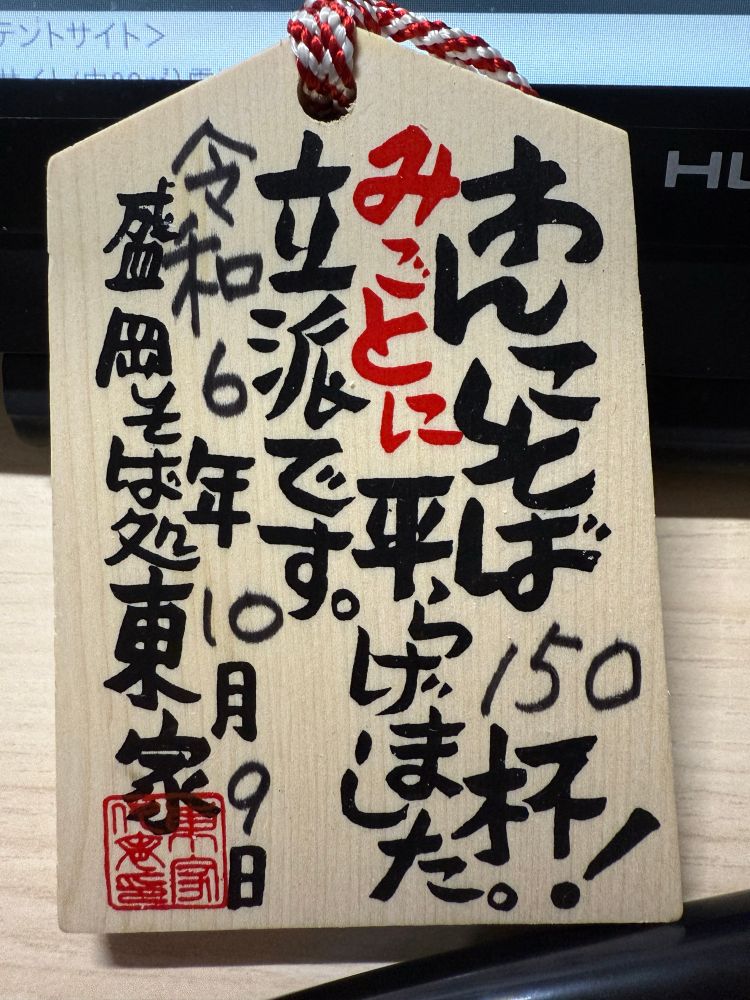 わんこそば150杯!
みごとに平らげました。
立派です。
令和6年10月9日
盛岡そば処東家
テントサイト>
HU